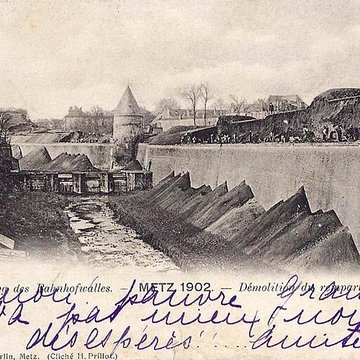 des Bahnhofwalles. — METZ 1902. — Démolition du rempart
pauvre
a pas mieux nou
désespérés ... amité
rlin, Metz. (Cliché H. Prillot.)